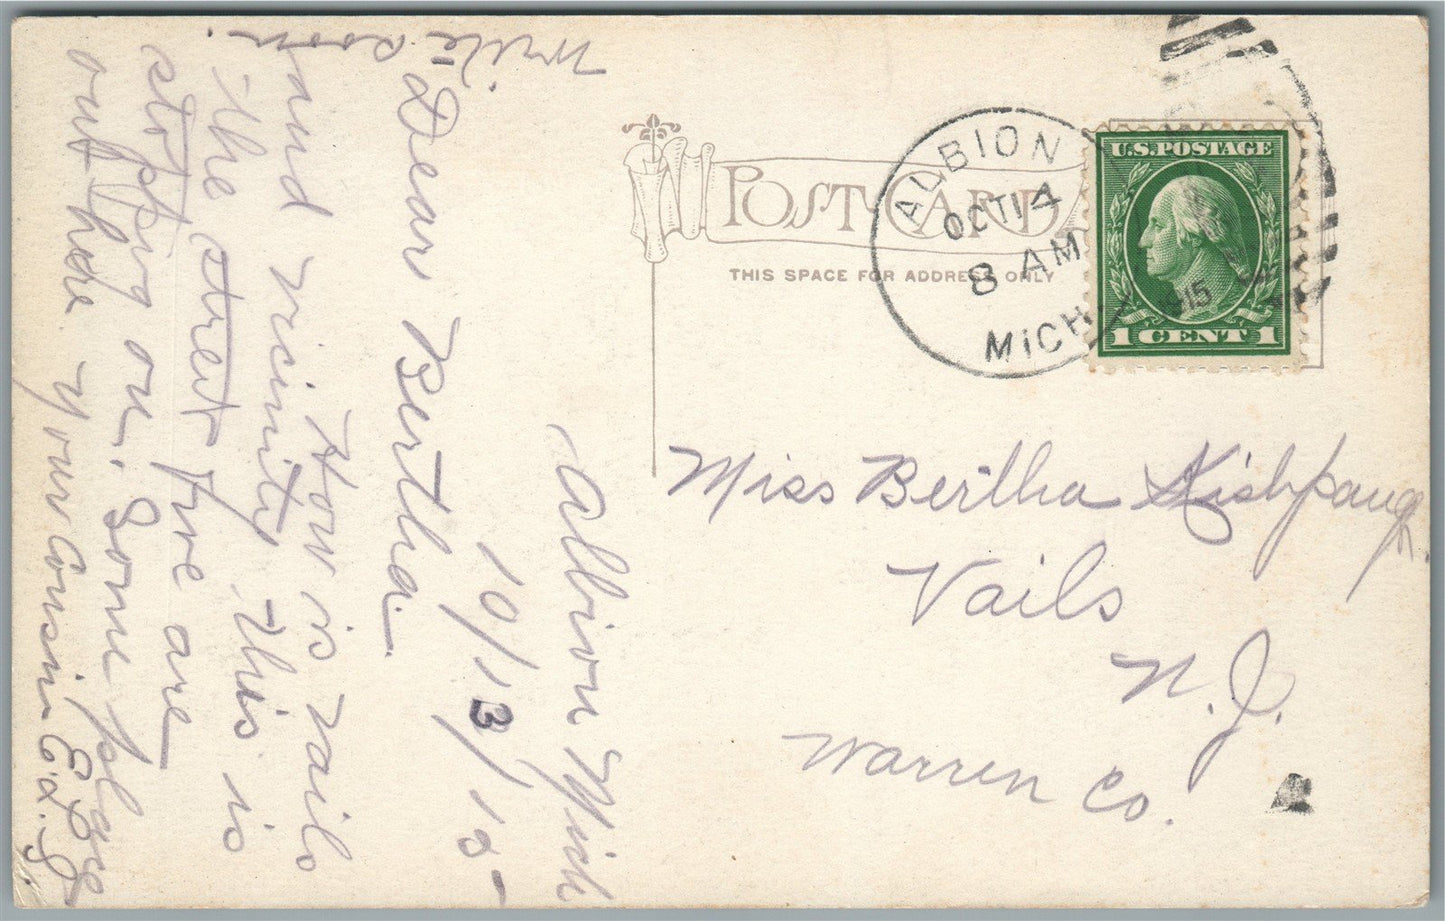 Albion Mich
10/13/15
Dear Bertha.
How is vails
and vicinity this is
the street we are
stoping on. Some place
out here your cousin Ed. S.
Write soon.
POST CARD
THIS SPACE FOR ADDRESS ONLY
ALBION
OCT 14
8 AM
1915
MICH.
U.S. POSTAGE
1 CENT 1
Miss Bertha Kishpaugh.
Vails
N. J.
Warren Co.